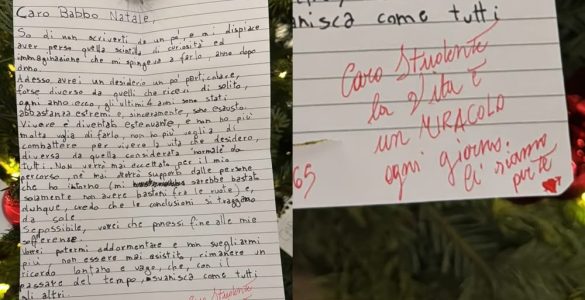 Caro Babbo Natale,
So di non scriverti da un po', e mi dispiace
aver perso quella scintilla di curiosità ed
immaginazione che mi spingeva a farlo, anno dopo
anno.
Adesso avrei un desiderio un po' particolare,
forse diverso da quelli che ricevi di solito,
ogni anno ecco, gli ultimi 4 anni sono stati
abbastanza estremi e, sinceramente, sono esausto.
Vivere è diventato estenuante, e non ho più
molta voglia di farlo, non ho più voglia di
combattere per vivere la vita che desidero,
diversa da quella considerata "normale" da
tutti. Non verrò mai accettato per il mio
percorso, né mai
che ho intorno (mi sarebbe bastato
solamente non avere bastoni fra le ruote) e,
dunque, credo che le conclusioni si traggano
da sole.
Se possibile, vorrei che ponessi fine alle mie
sofferenze.
Vorrei potermi addormentare e non svegliarmi
più, non essere mai esistito, rimanere un
ricordo lontano e vago, che, con il
passare del tempo, svanisca come tutti
gli altri.
Caro Studente
svanisca come tutti
Caro Studente
la Vita è
un MIRACOLO
ogni giorno.
Ci siamo
per te
65